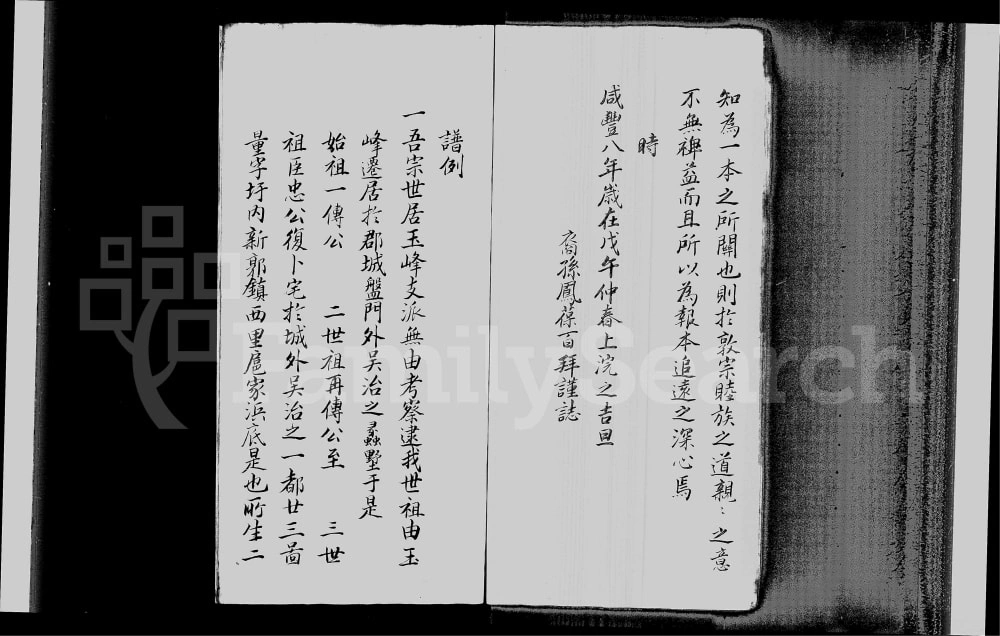 知為一本之所關也則於敦宗睦族之道親〻之意
不無裨益而且所以為報本追遠之深心焉
時
咸豐八年歲在戊午仲春上浣之吉旦
裔孫鳳葆百拜謹誌
譜例
一吾宗世居玉峰支派無由考察逮我世祖由玉
峰遷居於郡城盤門外吳治之蠡墅于是
始祖一傳公 二世祖再傳公至 三世
祖臣忠公復卜宅於城外吳治之一都廿三啚
量字圩内新郭鎮西里扈家浜底是也所生二
FamilySearch